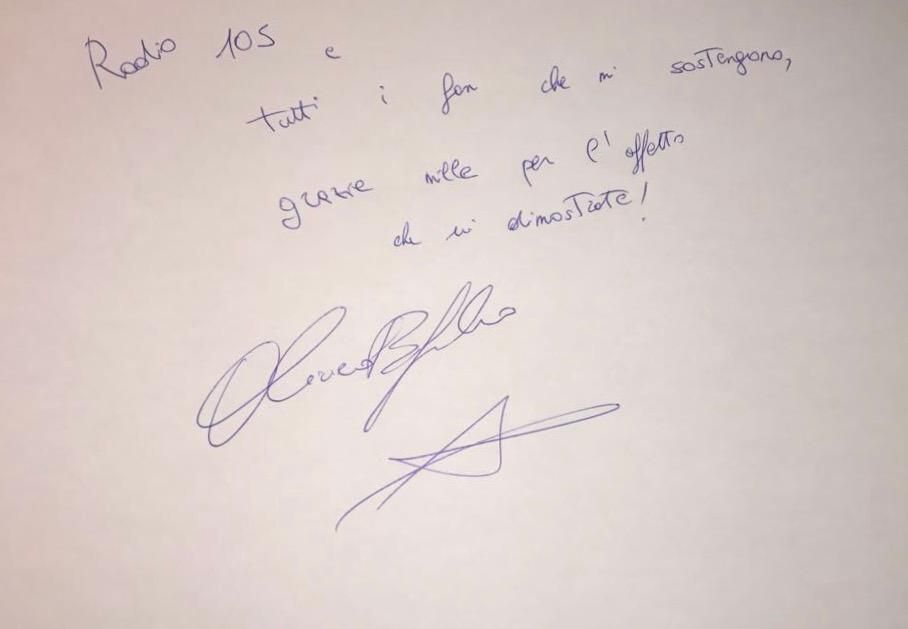 Radio 105 e
tutti i fan che mi sostengono,
grazie mille per l'affetto
che mi dimostrate!